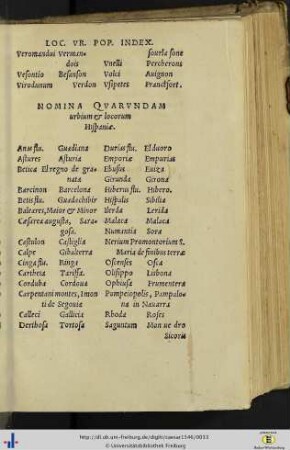 LOC. VR. POP. INDEX.
Veromandui Verman- sourla sone
dois Vnelli Percherons
Vesontio Besanson Volci Auignon
Virodunum Verdon Vsipetes Franckfort.
NOMINA QVARVNDAM
urbium & locorum
Hispaniæ.
Anas flu. Guadiana Durius flu. El duoro
Astures Asturia Emporiæ Empurias
Betica El regno de gra- Ebusus Euiza
nata Girunda Girona
Barcinon Barcelona Hiberus flu. Hibero.
Betis flu. Guadachibir Hispalis Sibilia
Baleares, Maior & Minor Ilerda Lerida
Cæsarea augusta, Sara- Malaca Malaca
gosa. Numantia Sora
Castulon Castiglia Nerium Promontorium S.
Calpe Gibalterra Maria de finibus terræ
Cinga flu. Ringa Oscenses Osca
Cartheia Tariffa. Olisippo Lisbona
Corduba Cordoua Ophiusa Frumentera
Carpentani montes, I mon Pompeiopolis, Pampalo-
ti de Segouie na in Nauarra
Calleci Gallicia Rhoda Roses
Derthosa Tortosa Saguntum Mon ue dro
Sicoris
http://dl.ub.uni-freiburg.de/diglit/caesar1546/0033
© Universitätsbibliothek Freiburg
Baden-Württemberg